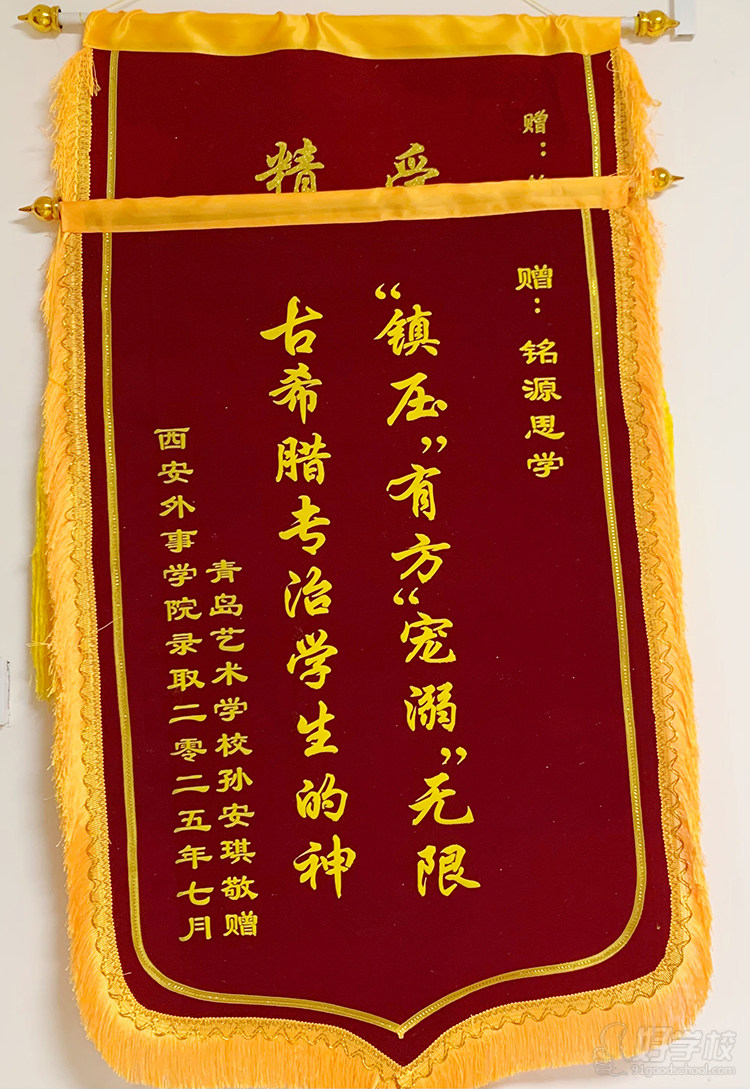 赠：
受
精
赠：铭源思学
“镇压”有方“宠溺”无限
古希腊专治学生的神
青岛艺术学校孙安琪敬赠
西安外事学院录取二零二五年七月
好学校
91goodschool.com